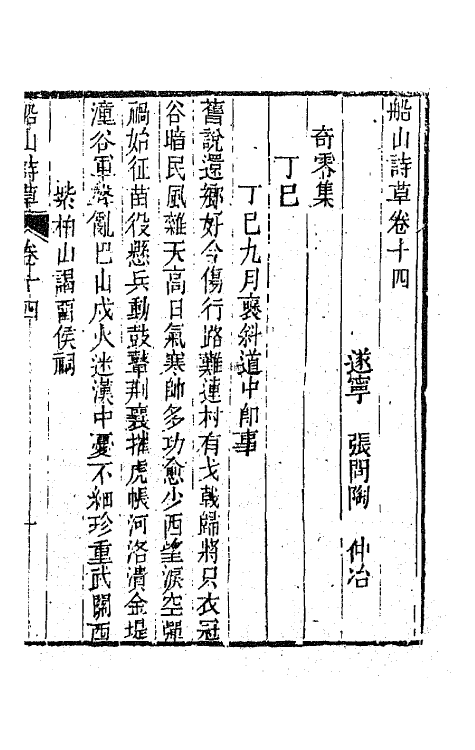 船山詩草卷十四
遂寧 張問陶 仲冶
奇零集
丁巳
丁巳九月襃斜道中卽事
舊說還鄉好今傷行路難連村有戈戟歸將只衣冠
谷暗民風雜天高日氣寒帥多功愈少西望淚空彈
禍始征苗役懸兵動鼓鼙荆襄摧虎帳河洛潰金堤
潼谷軍聲亂巴山戍火迷漢中憂不細珍重武關西
紫柏山謁留侯祠
船山詩草 卷十四 一